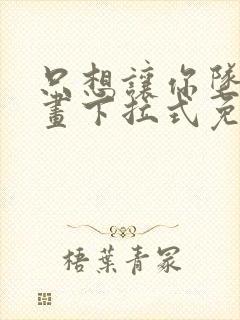 只想讓你墜
畫下拉式免
梧葉青冢